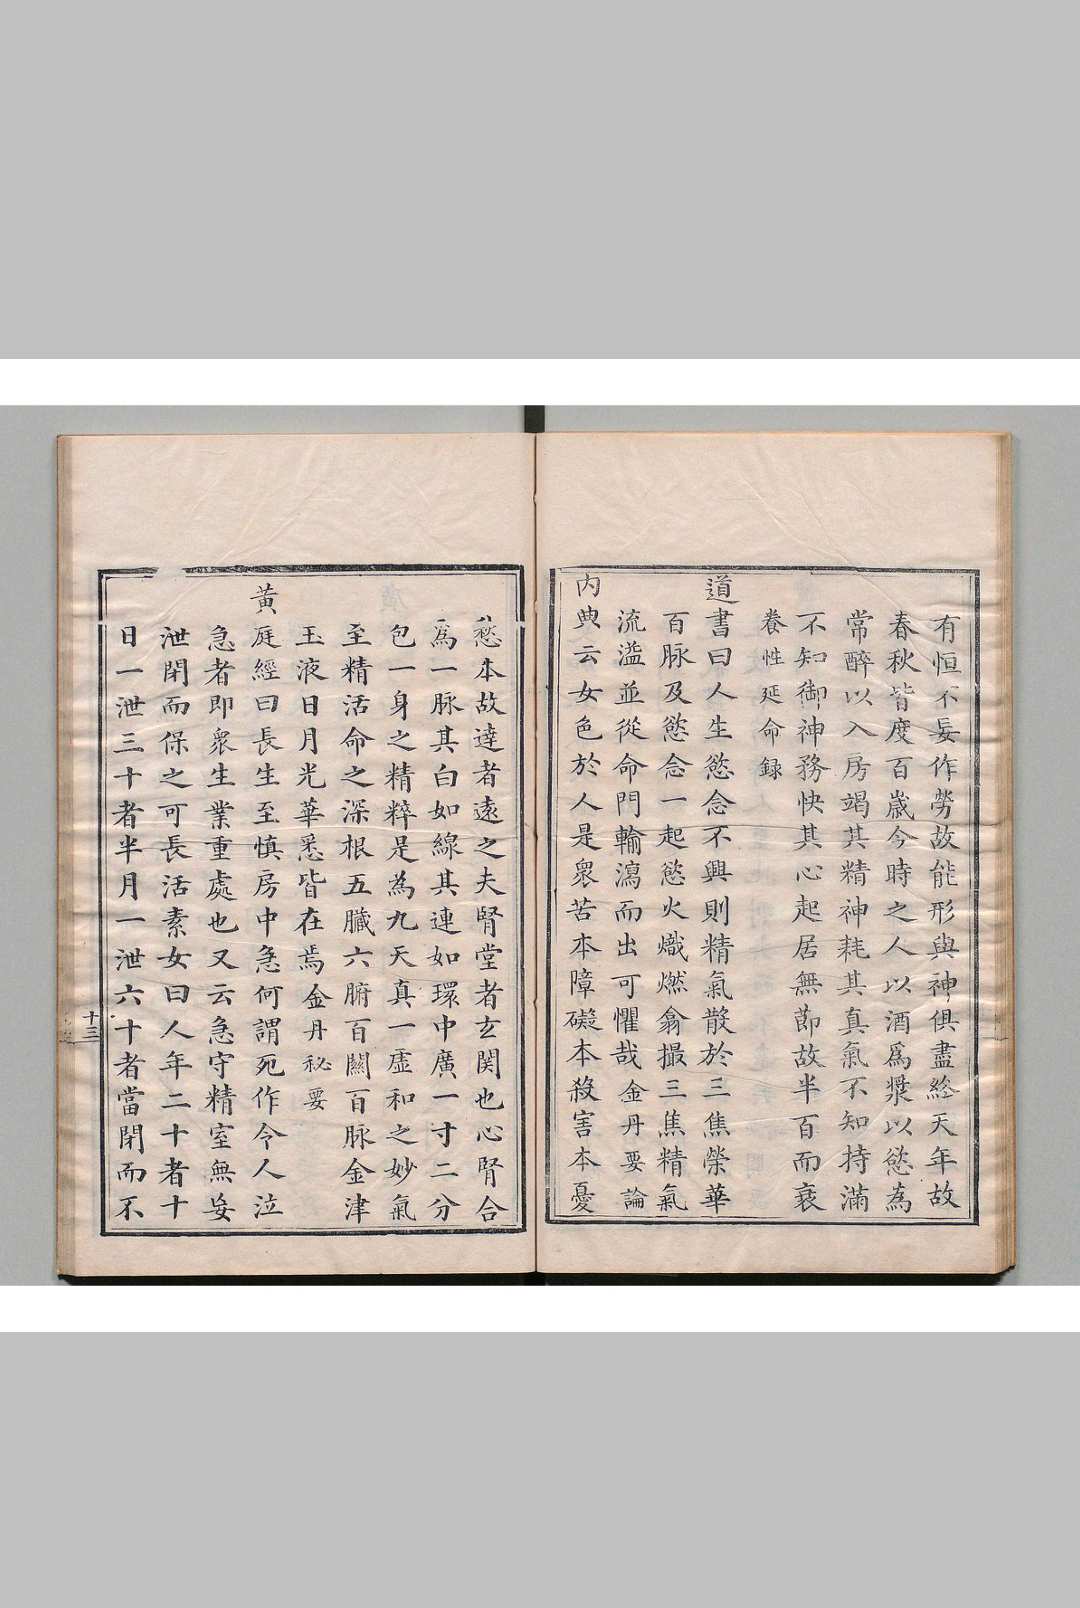 有恒不妄作勞故能形與神俱盡終天年故
春秋皆度百歲今時之人以酒爲漿以慾為
常醉以入房竭其精神耗其真氣不知持滿
不知御神務快其心起居無節故半百而衰
養性延命録
道書曰人生慾念不興則精氣散於三焦榮華
百脉及慾念一起慾火熾燃翕撮三焦精氣
流溢並從命門輸瀉而出可懼哉金丹要論
内典云女色於人是衆苦本障礙本殺害本憂
愁本故達者遠之夫腎堂者玄関也心腎合
爲一脉其白如線其連如環中廣一寸二分
包一身之精粹是為九天真一虛和之妙氣
至精活命之深根五臟六腑百關百脉金津
玉液日月光華悉皆在焉金丹秘要
黄庭經曰長生至慎房中急何謂死作令人泣
急者即衆生業重處也又云急守精室無妄
泄閉而保之可長活素女曰人年二十者十
日一泄三十者半月一泄六十者當閉而不
十三